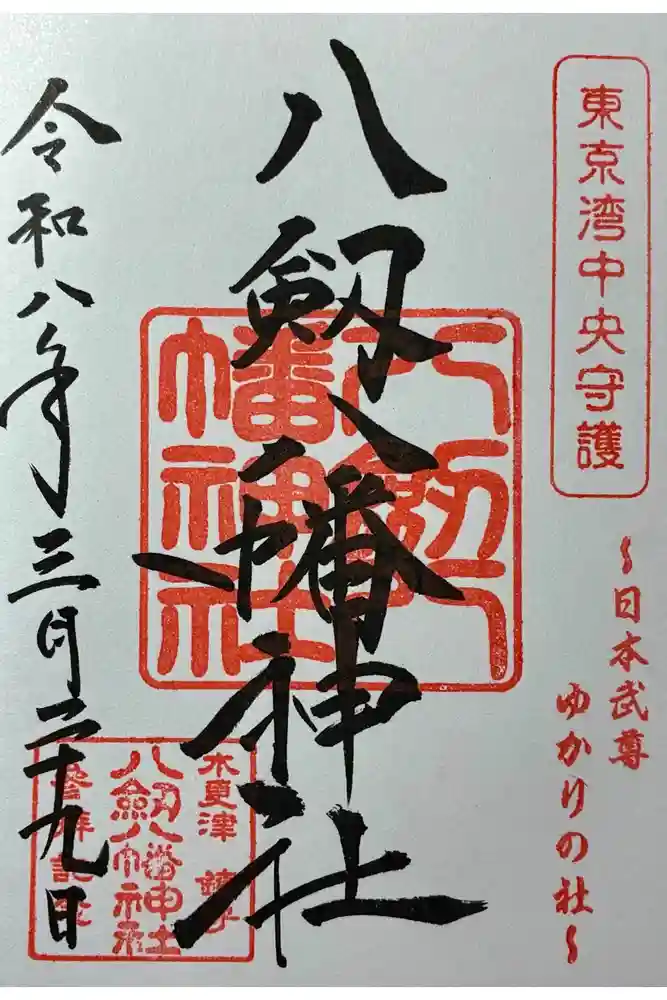 東京湾中央守護
〜日本武尊
ゆかりの社〜
八剱八幡神社
八剱八幡神社
令和八年三月二十九日
木更津 鎮守
八剱八幡神社
参拝記念